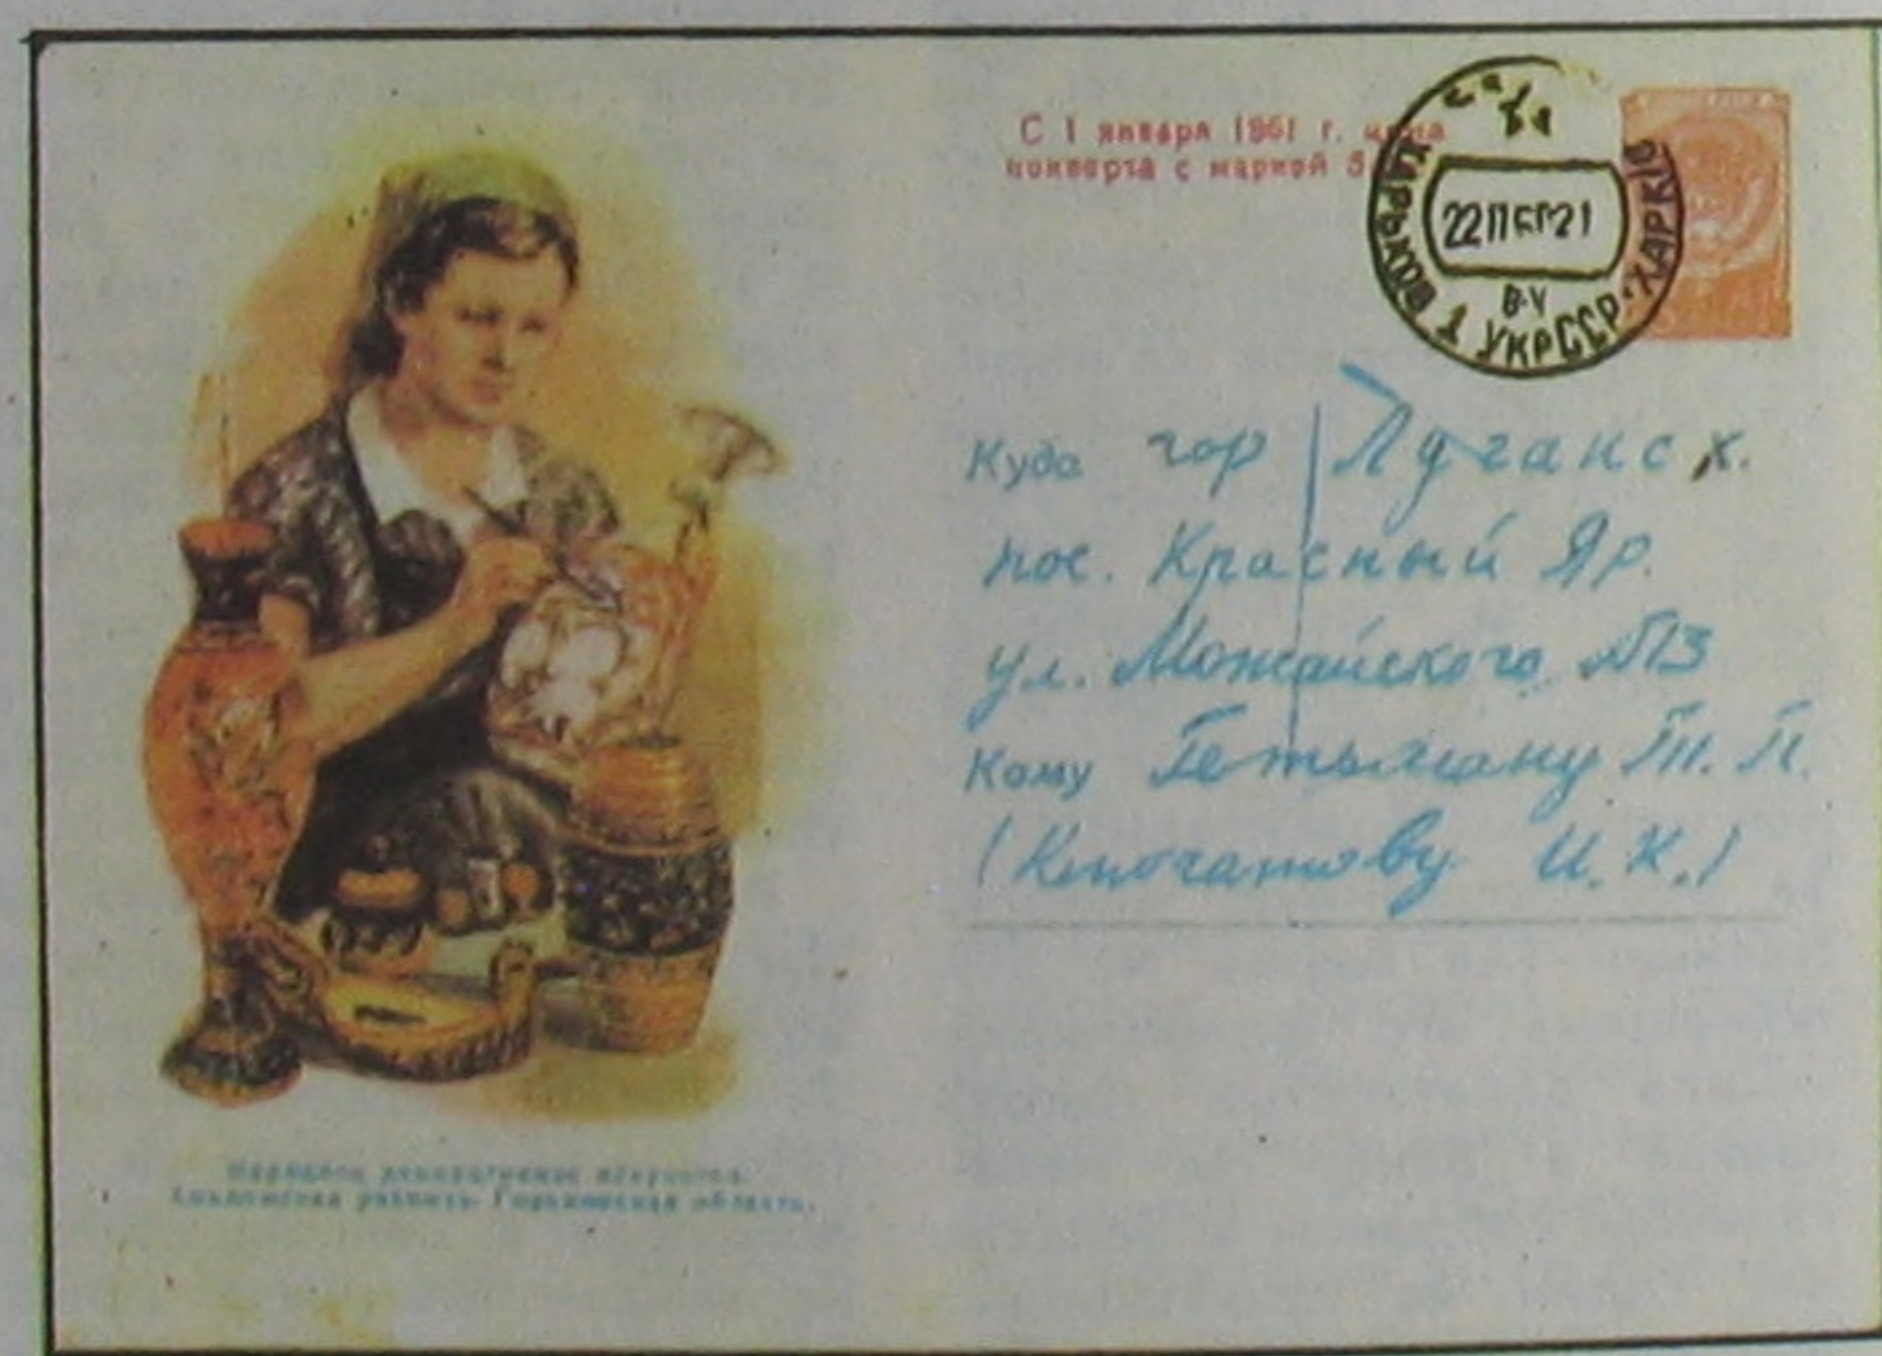 С 1 января 1961 г. цена
конверта с маркой 5
ХАРЬКОВ 1 УКРССР·ХАРКІВ
В-У
Куда гор Луганск.
пос. Красный Яр.
ул. Можайского №13
Кому Гетьману Т. П.
(Кипочатову И. К.)
Народное декоративное искусство.
Хохломская роспись. Горьковская область.